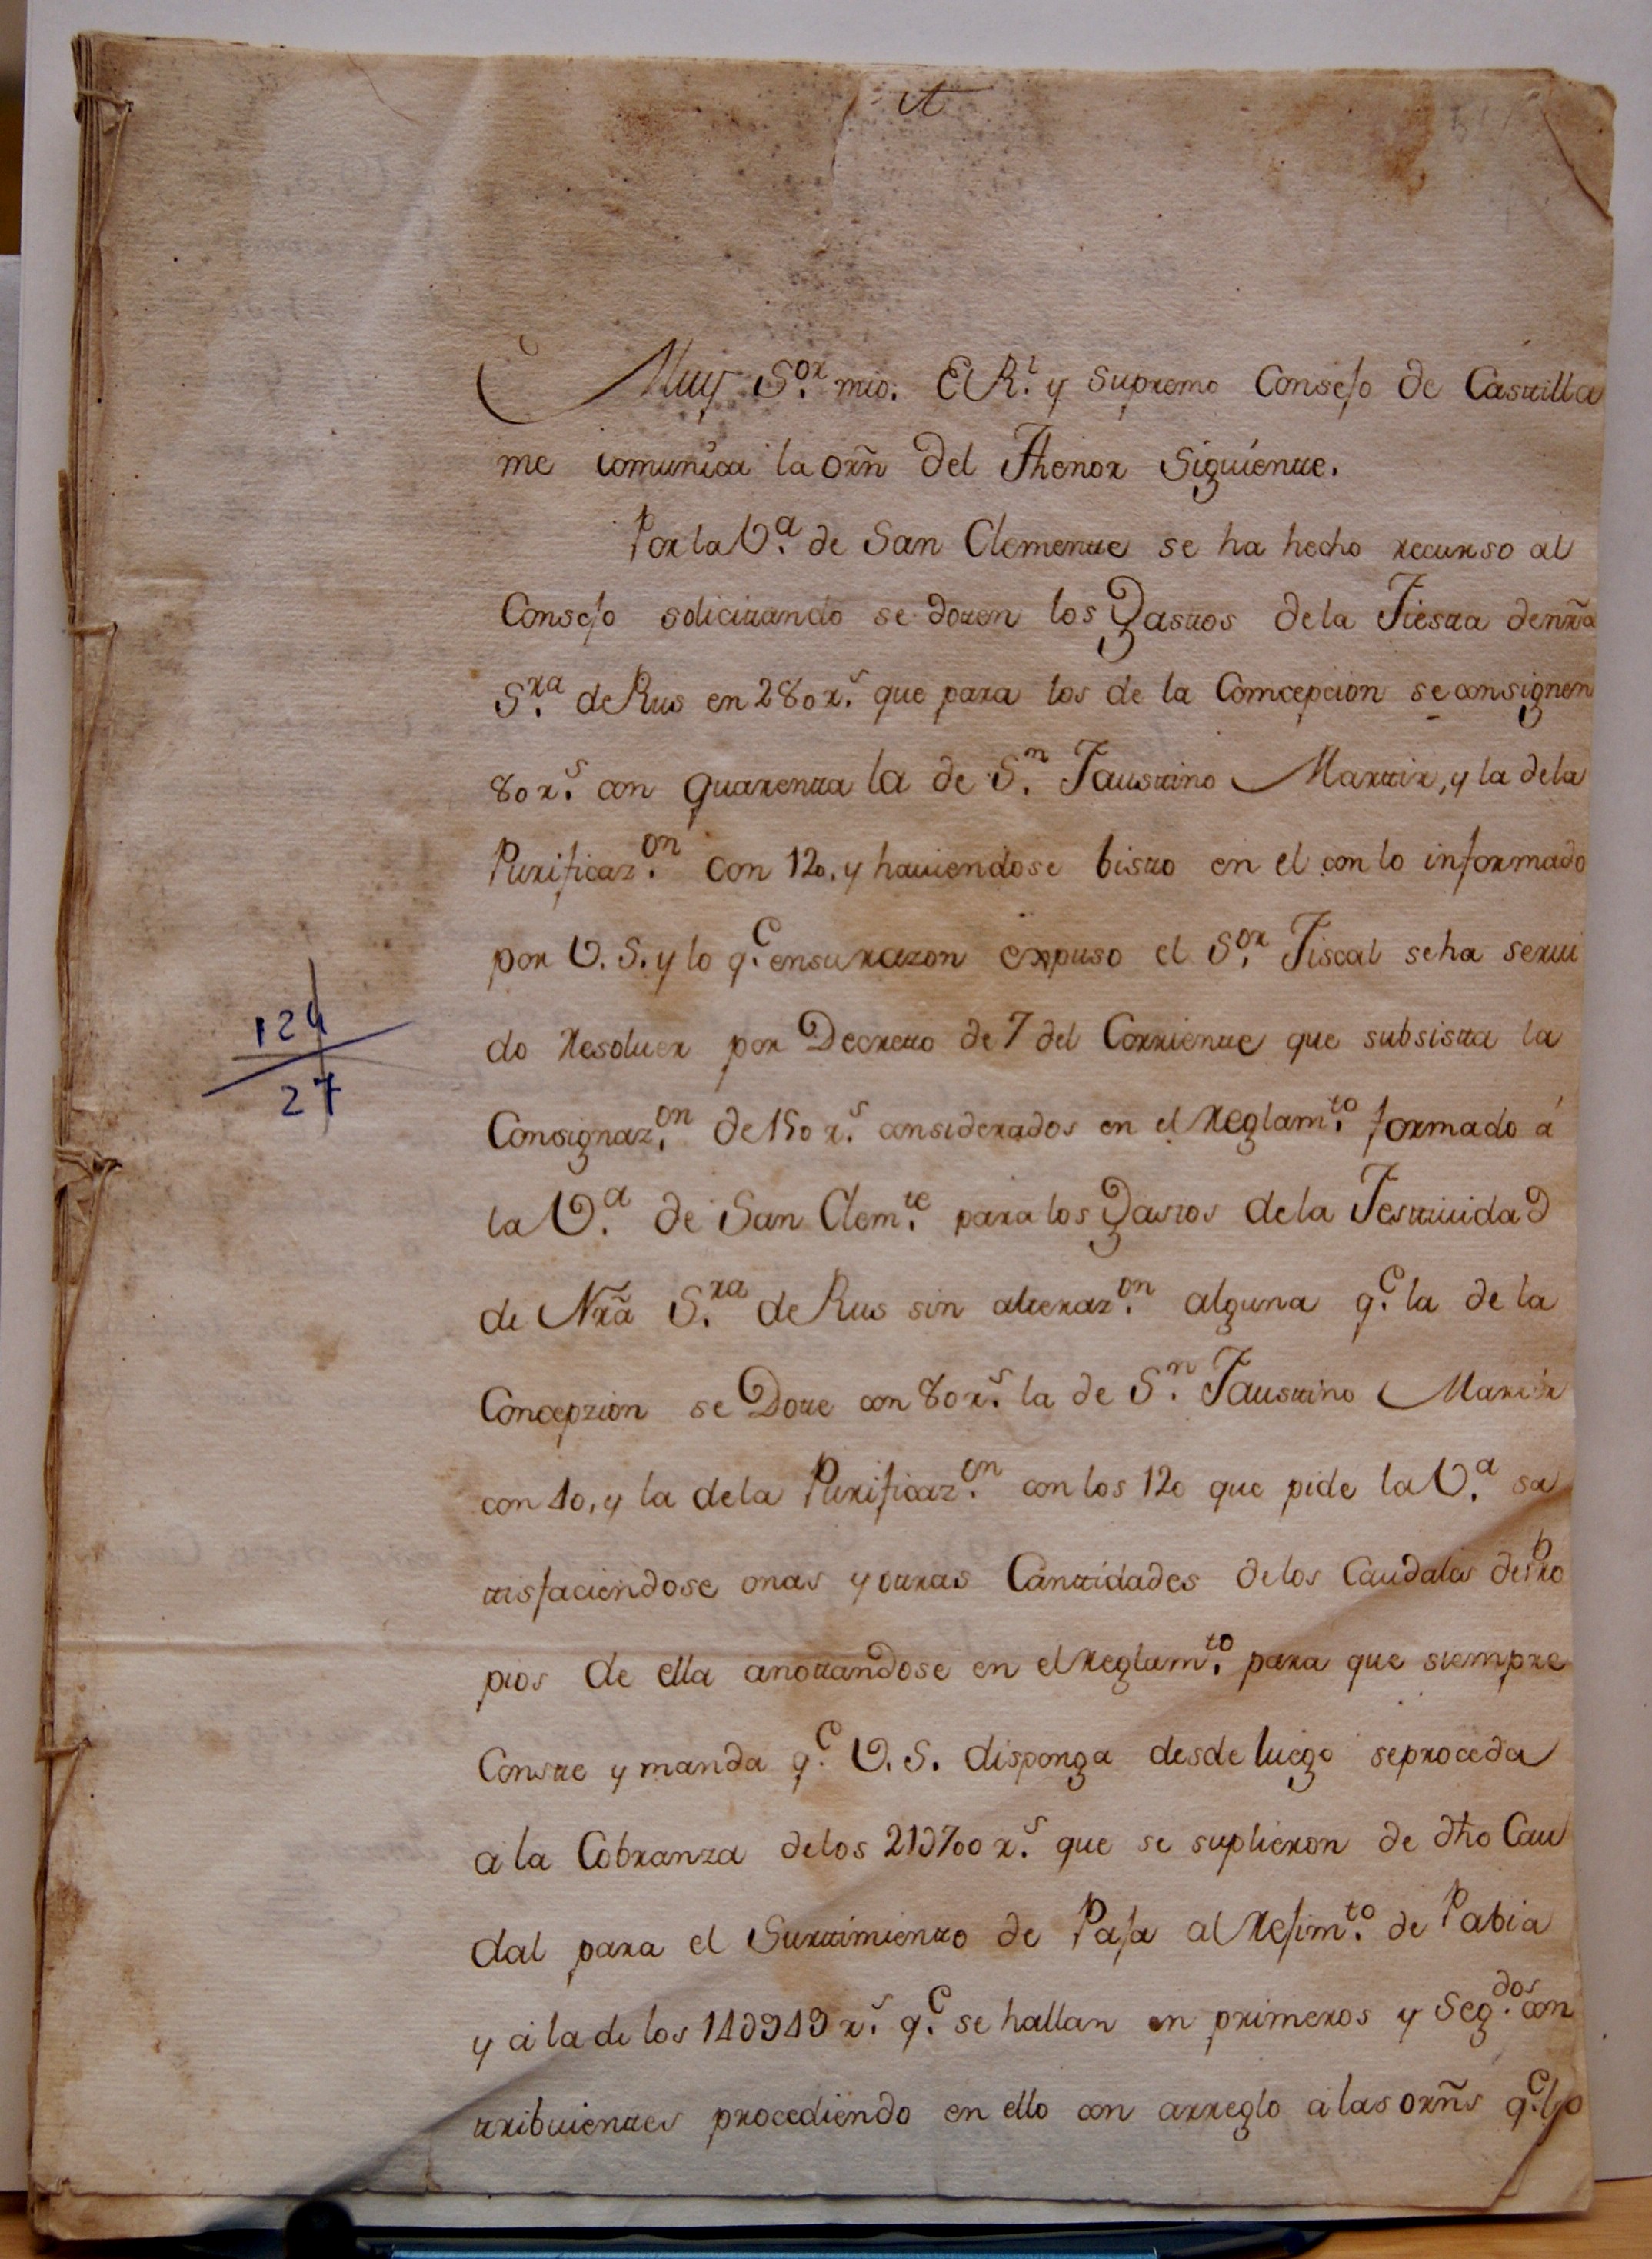 Muy S.or mio: El R.l y Supremo Consejo de Castilla
me comunica la orñ del Thenor Siguiente.
Por la V.a de San Clemente se ha hecho recurso al
Consejo solicitando se doten los Gastos dela Fiesta denr̃a
S.ra de Rus en 280 r.s que para los de la Comcepcion se consignen
80 r.s con quarenta la de S.n Faustino Martir, y la dela
Purificaz.on con 120, y haviendose bisto en el con lo informado
por V. S. y lo q.e ensurazon expuso el S.or Fiscal seha servi
do Resolver por Decreto de 7 del Corriente que subsista la
Consignaz.on de 150 r.s considerados en el Reglam.to formado á
la V.a de San Clem.te para los Gastos dela Festividad
de Nr̃a S.ra de Rus sin alteraz.on alguna q.e la de la
Concepzion se Dote con 80 r.s la de S.n Faustino Martir
con 40, y la dela Purificaz.on con los 120 que pide la V.a sa
tisfaciendose onas y otras Cantidades delos Caudales depro
pios de ella anotandose en el Reglam.to para que siempre
Conste y manda q.e V. S. disponga desde luego seproceda
a la Cobranza delos 21∂700 r.s que se suplieron de dho Cau
dal para el Surtimiento de Paja al Rejim.to de Pabia
y á la de los 14∂949 r.s q.e se hallan en primeros y Seg.dos con
tribuientes procediendo en ello con arreglo a las orñs q.e
124
27